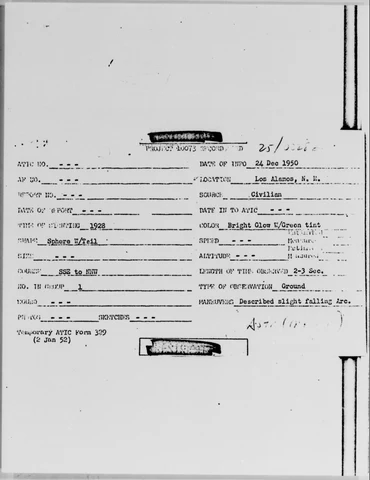 PROJECT 10073 RECORD CARD
ATIC NO. - - - DATE OF INFO 24 Dec 1950
AF NO. - - - LOCATION Los Alamos, N. M.
REPORT NO. - - - SOURCE Civilian
DATE OF REPORT - - - DATE IN TO ATIC - - -
TIME OF SIGHTING 1928 COLOR Bright Glow W/Green tint
SHAPE Sphere W/Tail SPEED - - -
SIZE - - - ALTITUDE - - -
COURSE SSE to NNW LENGTH OF TIME OBSERVED 2-3 Sec.
NO. IN GROUP 1 TYPE OF OBSERVATION Ground
SOUND - - - MANEUVERS Described slight falling Arc.
PHOTOS - - - SKETCHES - - -
Temporary ATIC Form 329
(2 Jan 52)